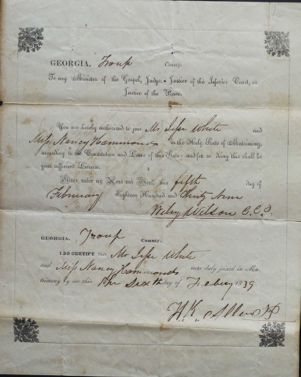 GEORGIA, Troup County.
To any Minister of the Gospel, Judge, Justice of the Inferior Court, or
Justice of the Peace.
You are hereby authorized to join Mr. White and
Miss Nancy Hammonds in the Holy State of Matrimony,
according to the Constitution and Laws of this State and for so doing this shall be
your sufficient License.
Given under my Hand and Seal this fifth day of
February Eighteen Hundred and Thirty Nine
Wiley Wilson C.C.O.
GEORGIA, Troup County:
I DO CERTIFY that Mr. White
and Miss Nancy Hammonds were duly joined in Ma-
trimony by me this the Sixth day of 1839